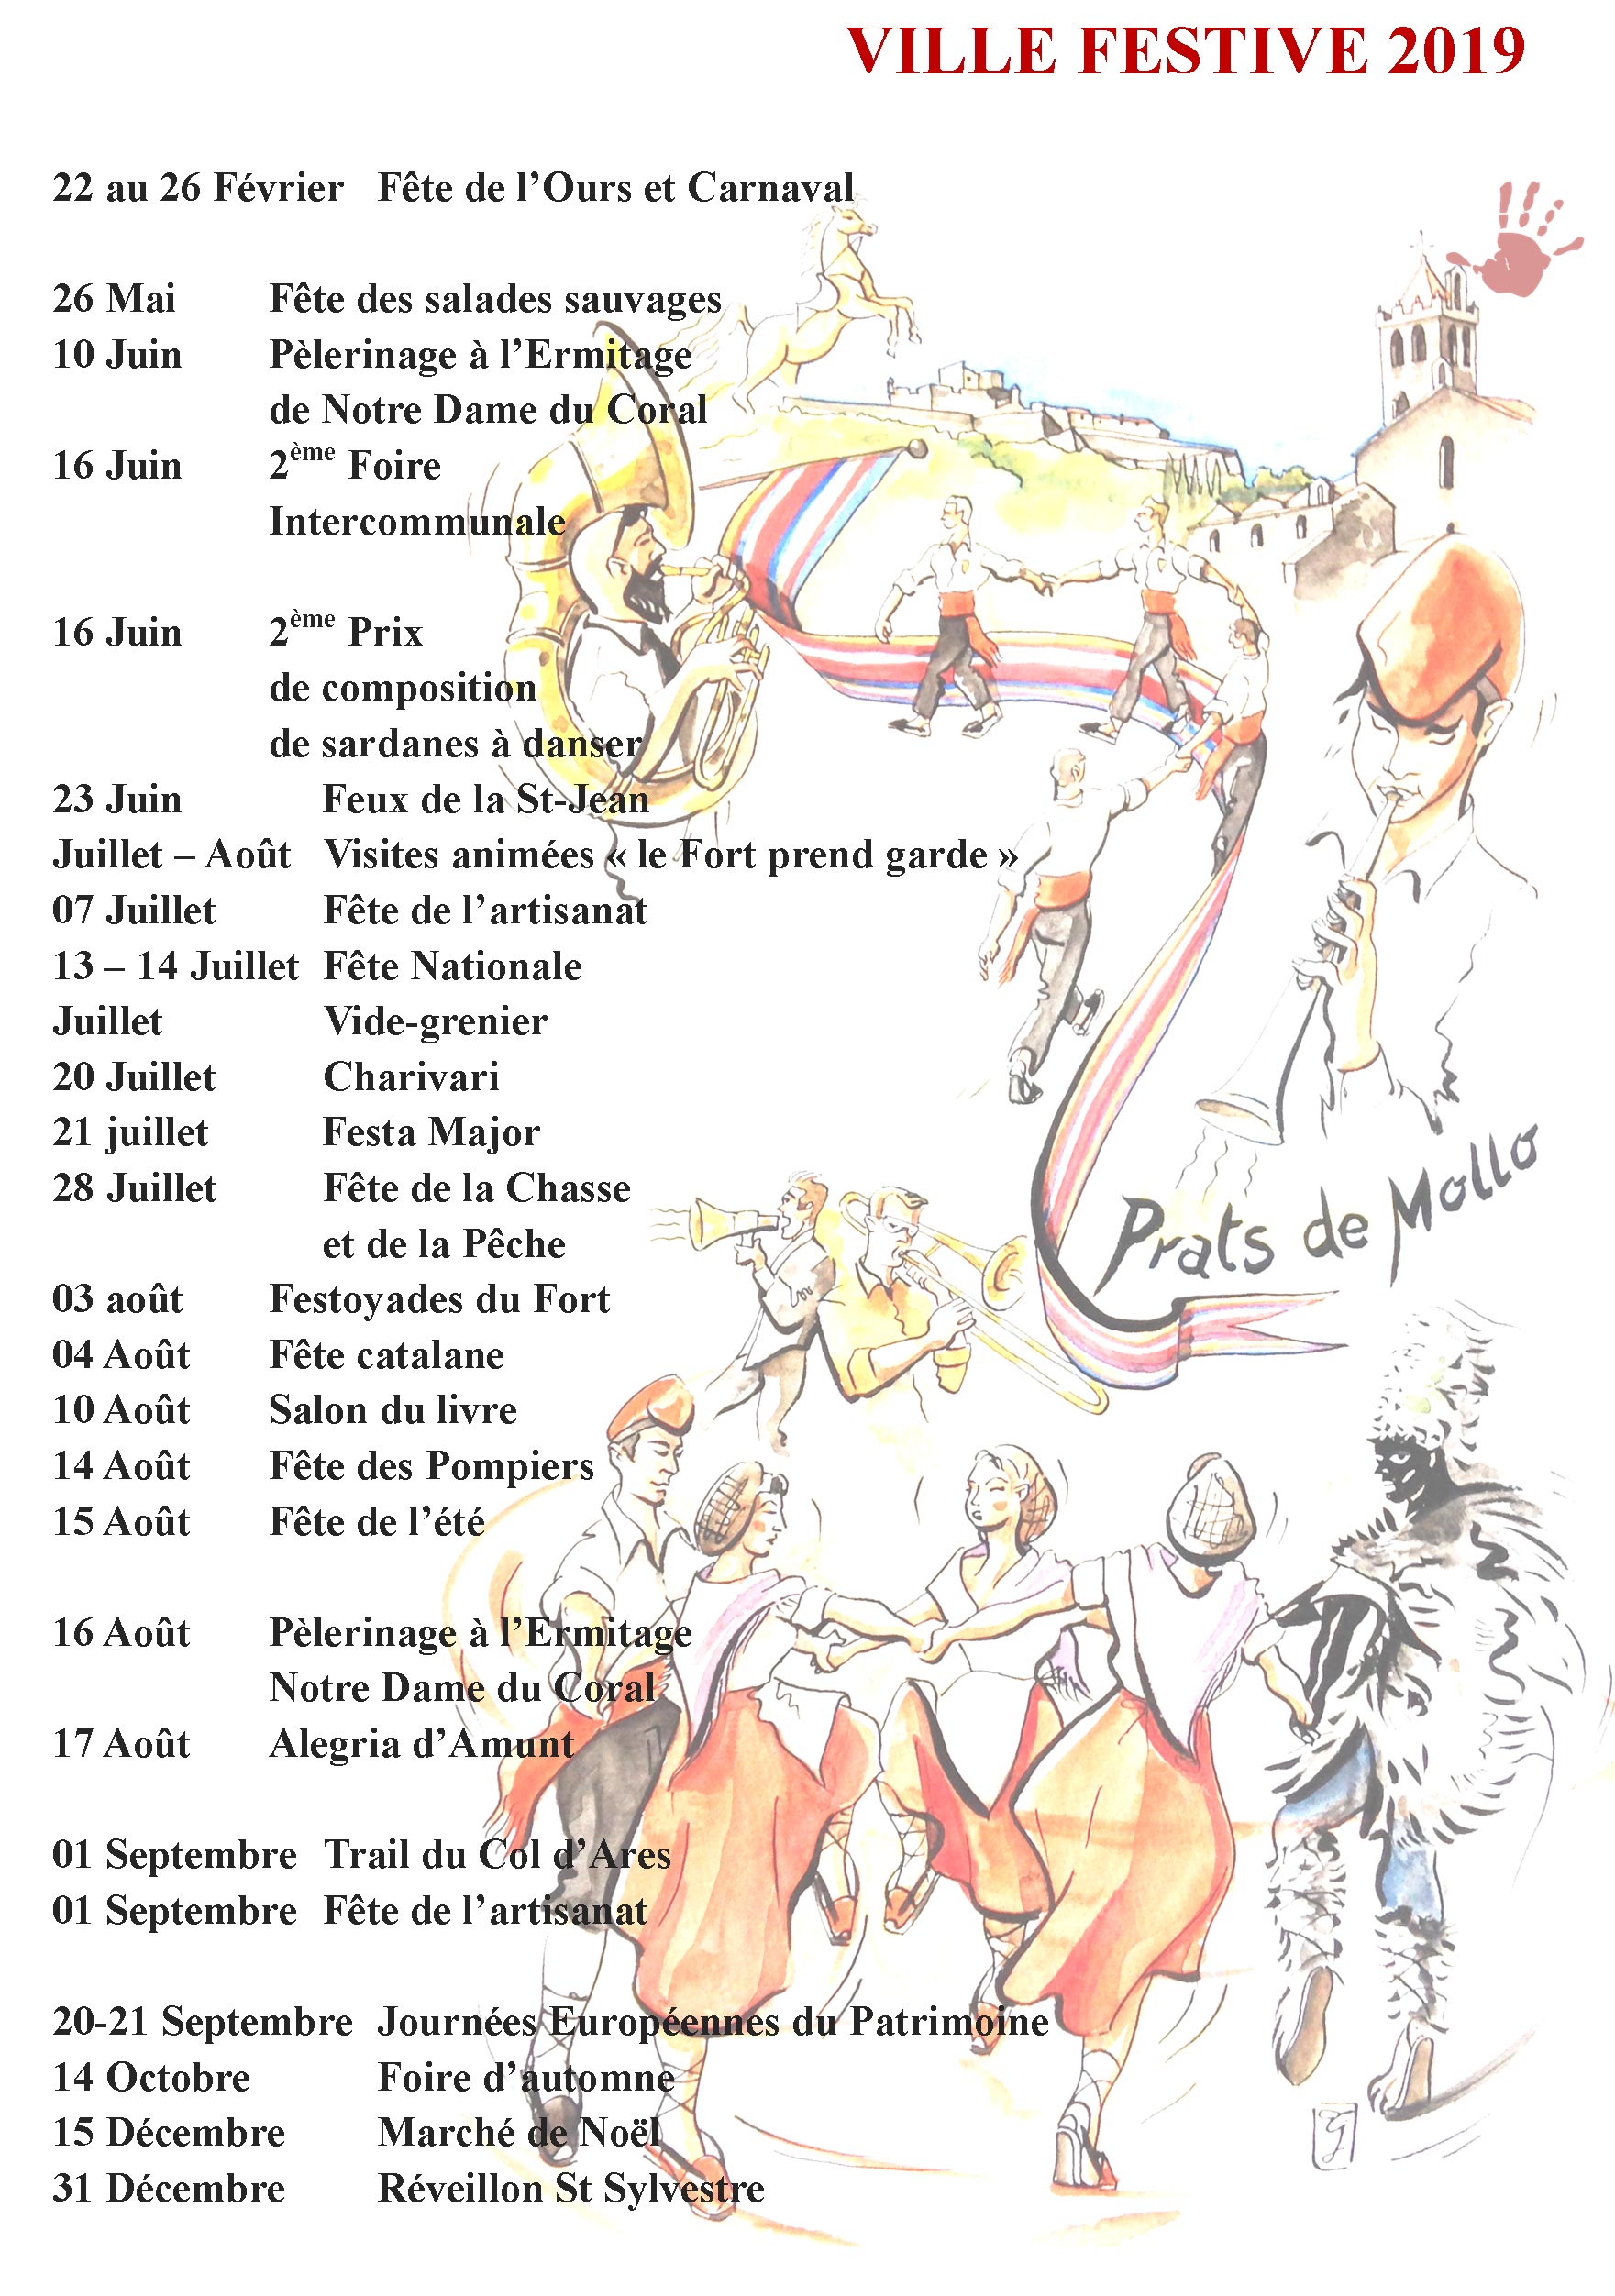 VILLE FESTIVE 2019
22 au 26 Février Fête de l’Ours et Carnaval
26 Mai Fête des salades sauvages
10 Juin Pèlerinage à l’Ermitage
de Notre Dame du Coral
16 Juin 2ème Foire
Intercommunale
16 Juin 2ème Prix
de composition
de sardanes à danser
23 Juin Feux de la St-Jean
Juillet – Août Visites animées « le Fort prend garde »
07 Juillet Fête de l’artisanat
13 – 14 Juillet Fête Nationale
Juillet Vide-grenier
20 Juillet Charivari
21 juillet Festa Major
28 Juillet Fête de la Chasse
et de la Pêche
Prats de Mollo
03 août Festoyades du Fort
04 Août Fête catalane
10 Août Salon du livre
14 Août Fête des Pompiers
15 Août Fête de l’été
16 Août Pèlerinage à l’Ermitage
Notre Dame du Coral
17 Août Alegria d’Amunt
01 Septembre Trail du Col d’Ares
01 Septembre Fête de l’artisanat
20-21 Septembre Journées Européennes du Patrimoine
14 Octobre Foire d’automne
15 Décembre Marché de Noël
31 Décembre Réveillon St Sylvestre